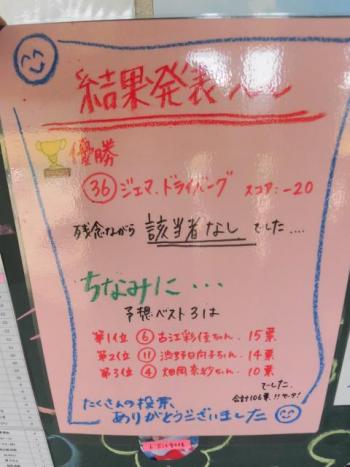 結果発表
優勝
㊱ ジェマ.ドライバーグ スコア:-20
残念ながら 該当者なし でした....
ちなみに・・・
予想ベスト3は
第1位 ⑥ 古江彩佳ちゃん. 15票
第2位 ⑪ 渋野日向子ちゃん. 14票
第3位 ④ 畑岡奈紗ちゃん. 10票
でした.
合計106票!!
たくさんの投票、
ありがとうございました